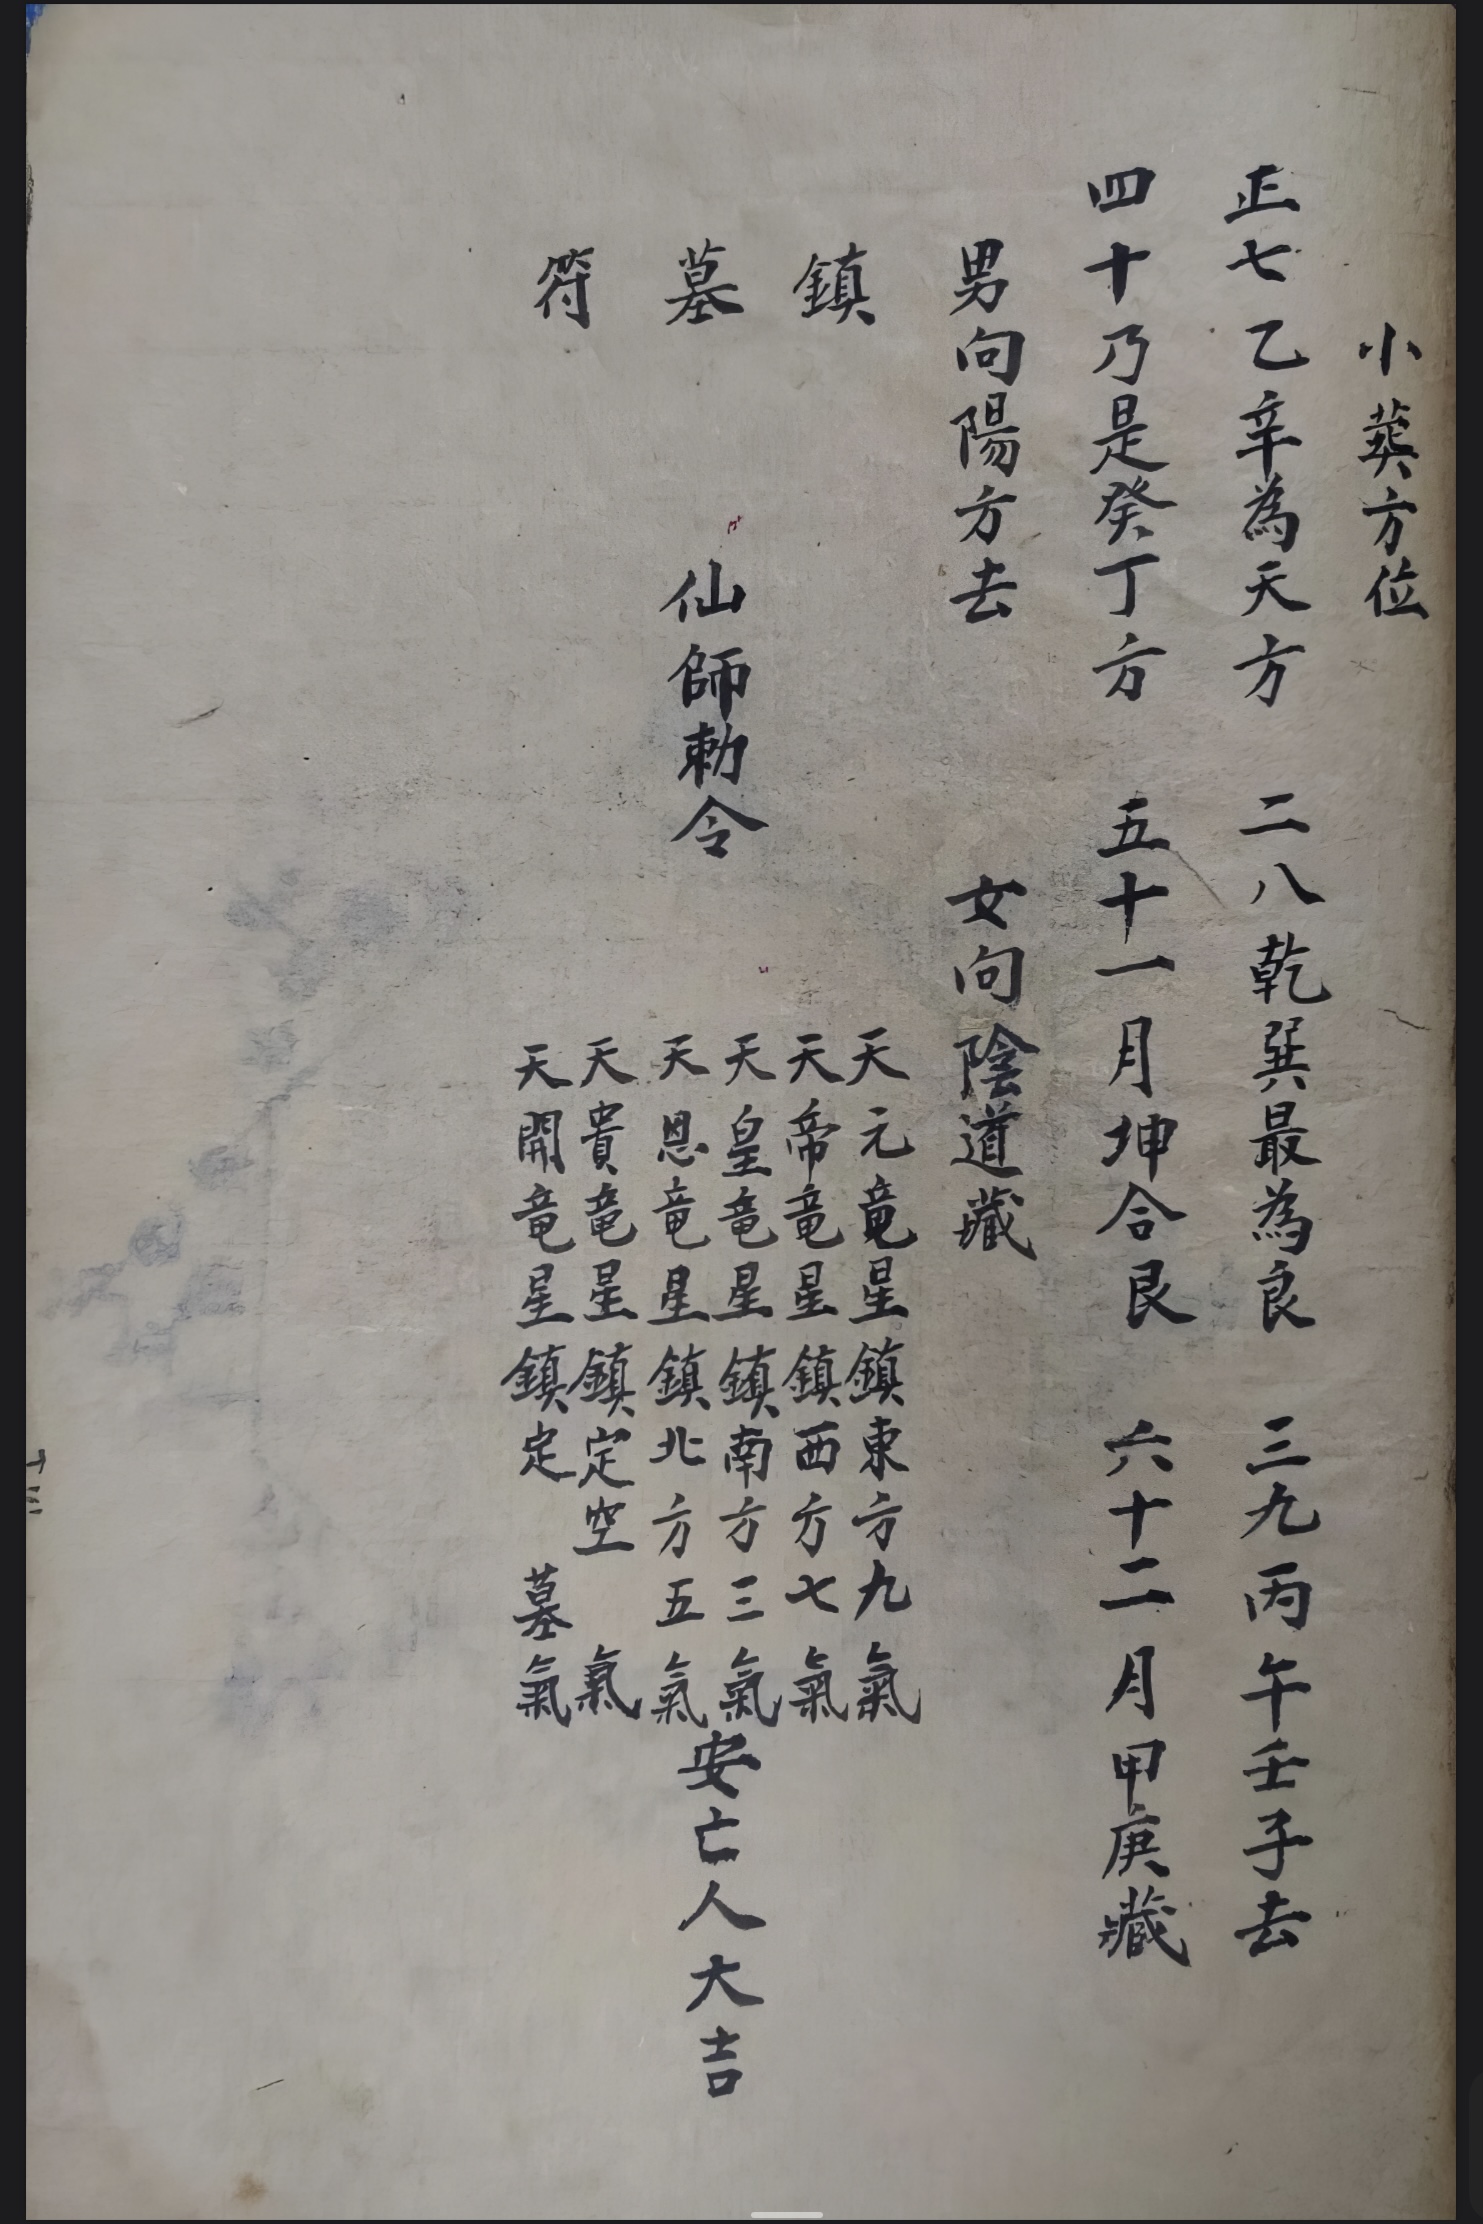 小葬方位
正七乙辛為天方 二八乾巽最為良 三九丙午壬子去
四十乃是癸丁方 五十一月坤合艮 六十二月甲庚藏
男向陽方去 女向陰道藏
鎮
墓
符
仙師勅令
天元竜星鎮東方九氣
天帝竜星鎮西方七氣
天皇竜星鎮南方三氣
天恩竜星鎮北方五氣
天貴竜星鎮定空氣
天開竜星鎮定墓氣
安亡人大吉